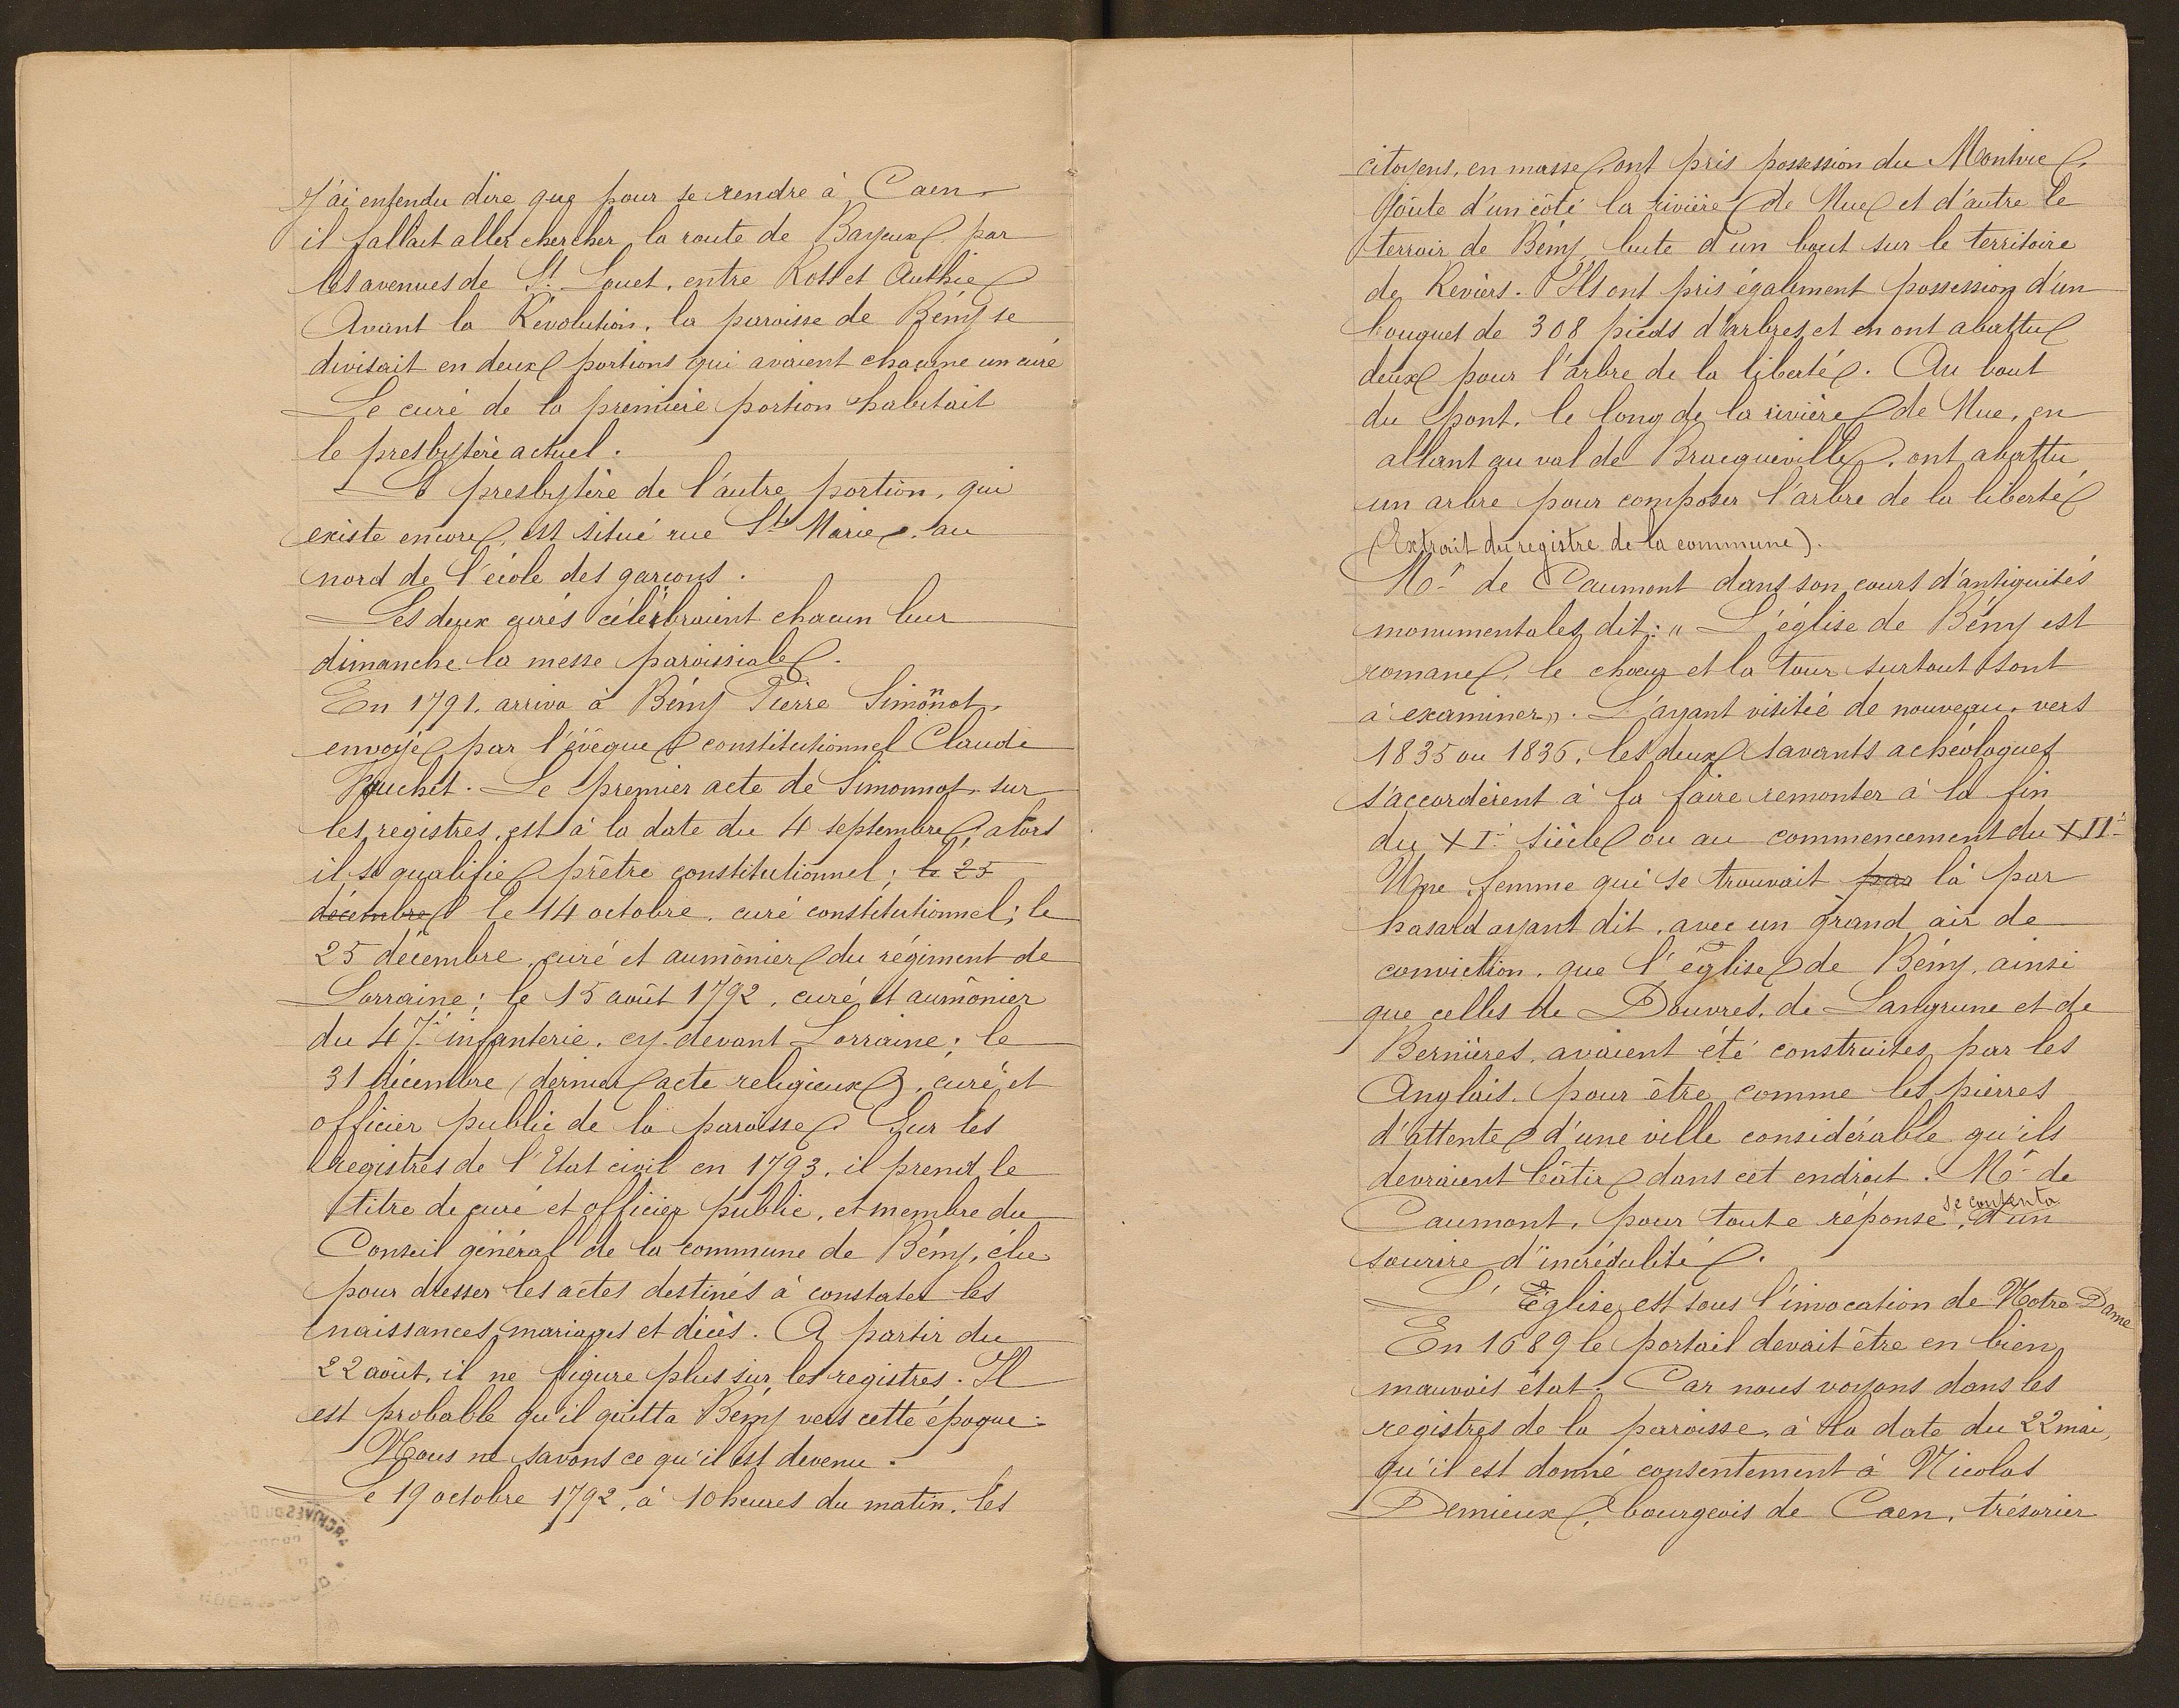 J'ai entendu dire que pour se rendre à Caen,
il fallait aller chercher la route de Bayeux par
les avenues de St. Louet, entre Rots et Authie
Avant la Révolution, la paroisse de Bény se
divisait en deux portions qui avaient chacune un curé
Le curé de la première portion habitait
le presbytère actuel.
Le presbytère de l'autre portion, qui
existe encore, est situé rue Ste Marie, au
nord de l'école des garçons.
Les deux curés célébraient chacun leur
dimanche la messe paroissiale.
En 1791, arriva à Bény Pierre Simonnot,
envoyé par l'évêque constitutionnel Claude
Fauchet. Le premier acte de Simonnot, sur
les registres, est à la date du 4 septembre, alors
il se qualifie prêtre constitutionnel; le 25
décembre le 14 octobre, curé constitutionnel; le
25 décembre, curé et aumônier du régiment de
Lorraine; le 15 août 1792, curé et aumônier
du 47e infanterie, cy-devant Lorraine; le
31 décembre (dernier acte religieux), curé et
officier public de la paroisse. Sur les
registres de l'Etat civil en 1793, il prend le
titre de curé et officier public, et membre du
Conseil général de la commune de Bény, élu
pour dresser les actes destinés à constater les
naissances, mariages et décès. A partir du
22 août, il ne figure plus sur les registres. Il
est probable qu'il quitta Bény vers cette époque.
Nous ne savons ce qu'il est devenu.
Le 19 octobre 1792, à 10 heures du matin, les
citoyens, en masse, ont pris possession du
Joûte d'un côté la rivière de Mue et d'autre le
terroir de Bény, bute d'un bout sur le territoire
de Reviers. Ils ont pris également possession d'un
bouquet de 308 pieds d'arbres, et en ont abattu
deux pour l'arbre de la liberté. Au bout
du pont, le long de la rivière de Mue, en
allant au val de Bracqueville, ont abattu
un arbre pour composer l'arbre de la liberté
(Extrait du registre de la commune).
Mr de Caumont dans son cours d'antiquités
monumentales, dit: "L'église de Bény est
romane, le chœur et la tour surtout sont
à examiner". L'ayant visitée de nouveau, vers
1835 ou 1836, les deux savants achéologues
s'accordèrent à la faire remonter à la fin
du XIe siècle ou au commencement du XIIe
Une femme qui se trouvait par là par
hasard ayant dit, avec un grand air de
conviction, que l'église de Bény, ainsi
que celles de Douvres, de Langrune et de
Bernières, avaient été construites par les
Anglais, pour être comme les pierres
d'attente d'une ville considérable qu'ils
devraient bâtir dans cet endroit. Mr de
Caumont, pour toute réponse, se contenta d'un
sourire d'incrédulité.
L'Eglise est sous l'invocation de Notre Dame
En 1689 le portail devait être en bien
mauvais état. Car nous voyons dans les
registres de la paroisse, à la date du 22 mai,
qu'il est donné consentement à Nicolas
Demieux, bourgeois de Caen, trésorier